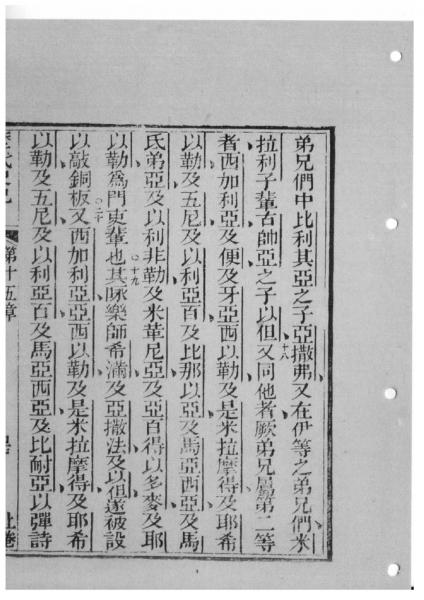 弟兄們中比利其亞之子亞撒弗又在伊等之弟兄們米
拉利子輩古帥亞之子以但十八又同他者厥弟兄屬第二等
者西加利亞及便及牙亞西以勒及是米拉摩得及耶希
以勒及五尼及以利亞百及比那以亞及馬亞西亞及馬
氏弟亞及以利非勒及米革尼亞及亞百得以多麥及耶
以勒為門吏輩也十九其咏樂師希滿及亞撒法及以但遂被設
以敲銅板二十又西加利亞亞西以勒及是米拉摩得及耶希
以勒及五尼及以利亞百及馬亞西亞及比耐亞以彈詩
歷代史記 第十五章